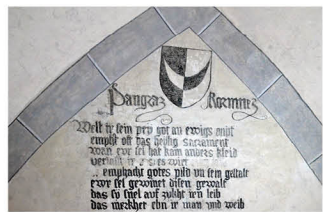 Pangratz Kornmes
Welt ir sein pey got an ewigs anbt
empfht oft das heylig sacrament
wan ewr sel hat kain anders kleid
verlast
emphacht gotes pild vn sein gestalt
ewr sel gewinet disen gewalt
das so snel auf zukht ien leib
das merkhet ebn ir man vnd weib